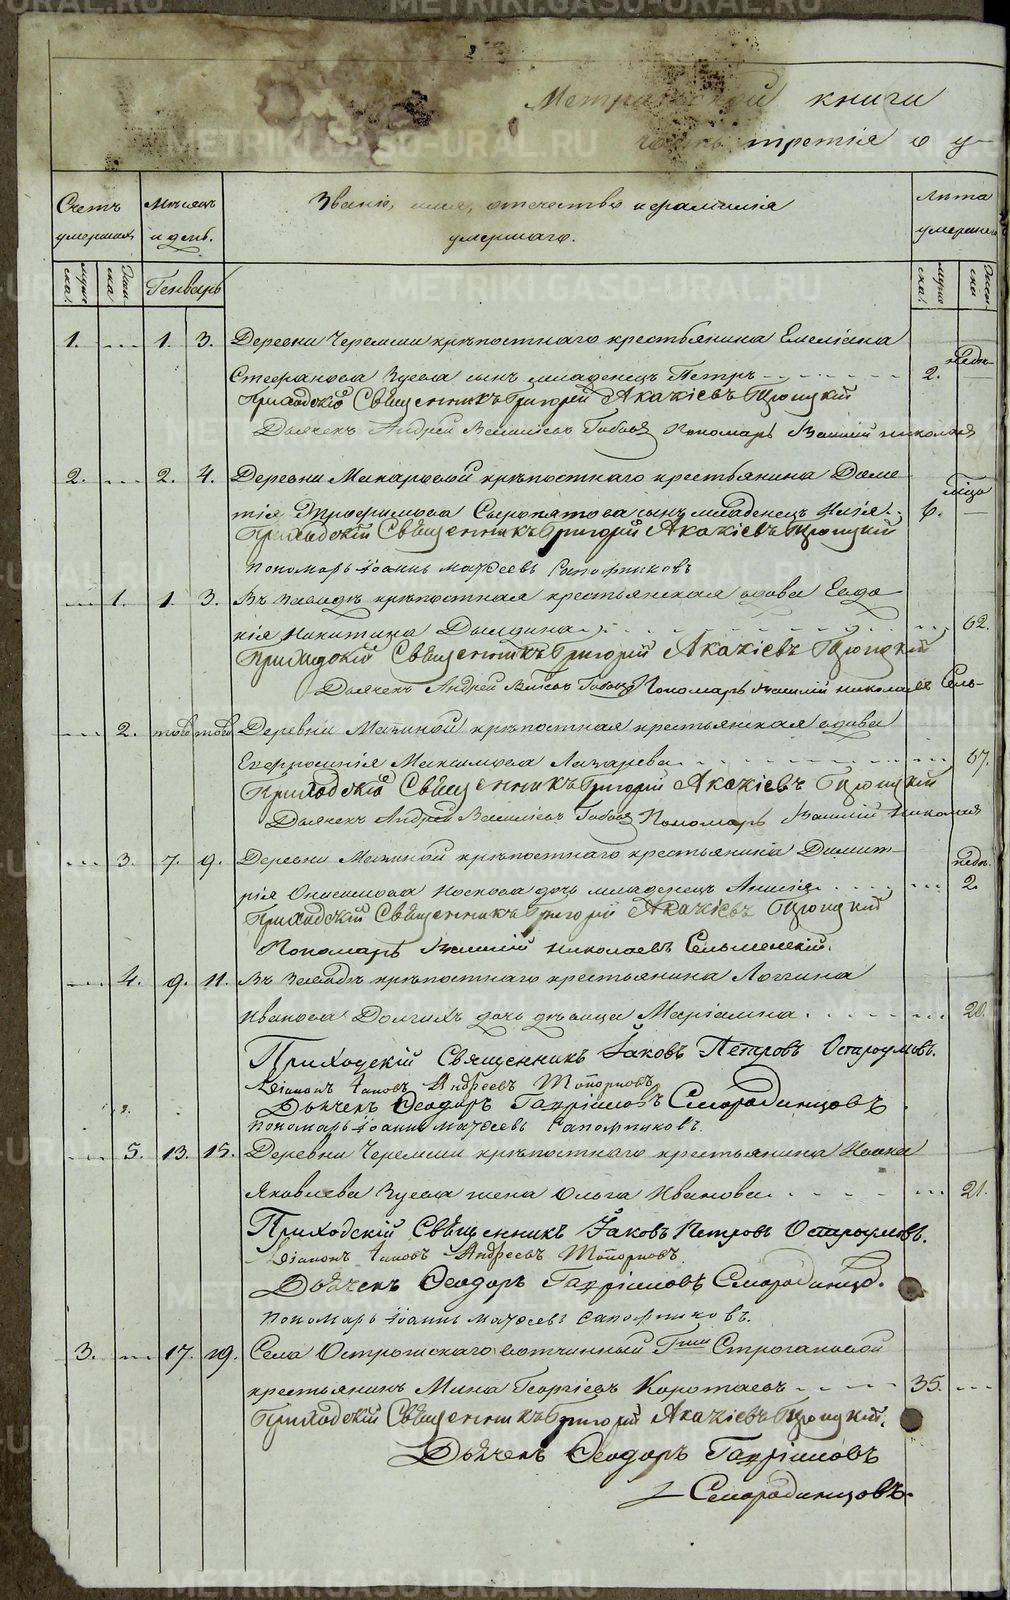 METRIKI.GASO-URAL.RU
Метрической книги
часть третія о у
Счетъ умершихъ
Мѣсяцъ и день.
Званіе, имя, отечество и фамилія умершаго.
Лѣта умершаго
муже ска: Жен ска Генварь муже ска: Женс ка
1. ... 1. 3. Деревни Черемши крѣпостнаго крестьянина Емеліана
Стефанова Зуева сынъ младенецъ Петръ 2. недѣ.
Приходскій Священникъ Григорій Акакіевъ Троицкій
Дьячекъ Андрей Васильевъ Пономарь Василій Николаевъ
2. ... 2. 4. Деревни Макаровой крѣпостнаго крестьянина Доме-
тія Трофимова Сыропятова сынъ младенецъ Илія 6.
Приходскій Священникъ Григорій Акакіевъ Троицкій
Пономарь Іоаннъ Матѳеевъ Сапожниковъ
... 1. 1. 3. Въ Заводѣ крѣпостная крестьянская вдова Евдо-
кія Никитина 62.
Приходскій Священникъ Григорій Акакіевъ Троицкій
Дьячекъ Андрей Пономарь Василій Николаевъ Сель-
... 2. тово тово Деревни Мячиной крѣпостная крестьянская вдова
Евфросинія Максимова Лазарева 67.
Приходскій Священникъ Григорій Акакіевъ Троицкій
Дьячекъ Андрей Васильевъ Пономарь Василій Николаевъ
... 3. 7. 9. Деревни Мячиной крѣпостнаго крестьянина Димит-
рія Онисимова Носкова дочь младенецъ Анисія ... недѣ. 2.
Приходскій Священникъ Григорій Акакіевъ Троицкій
Пономарь Василій Николаевъ Сельменскій.
... 4. 9. 11. Въ Заводѣ крѣпостнаго крестьянина Логгина
Иванова Долгихъ дочь дѣвица Маріамна ... 20.
Приходскій Священникъ Іаковъ Петровъ Остроумовъ.
Діаконъ Іаковъ Андреевъ Топорковъ
Дьячекъ Ѳеодоръ Гавріиловъ Смородинцовъ
Пономарь Іоаннъ Матѳеевъ Сапожниковъ.
... 5. 13. 15. Деревни Черемши крѣпостнаго крестьянина Іоанна
Яковлева Зуева жена Ольга Иванова ... 21.
Приходскій Священникъ Іаковъ Петровъ Остроумовъ.
Діаконъ Іаковъ Андреевъ Топорковъ
Дьячекъ Ѳеодоръ Гавріиловъ Смородинцов.
Пономарь Іоаннъ Матѳеевъ Сапожниковъ.
3. ... 17. 19. Села Острожскаго вотчинный Гжи Строгановой
крестьянинъ Мина Георгіевъ Коротаевъ 35. ...
Приходскій Священникъ Григорій Акакіевъ Троицкій.
Дьячекъ Ѳеодоръ Гавріиловъ
Смородинцовъ.